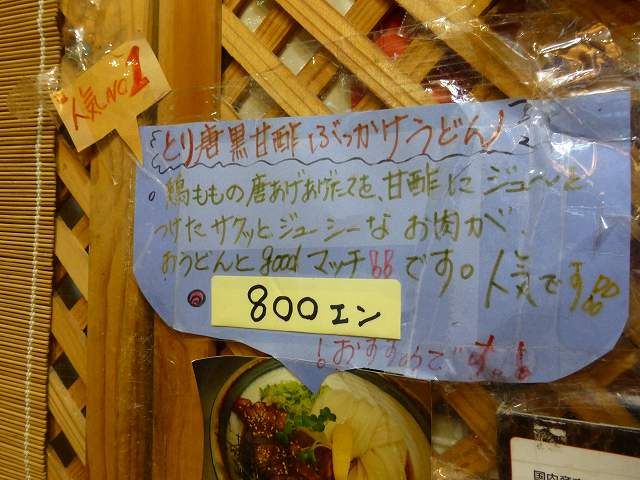 人気NO.1
とり唐黒甘酢ぶっかけうどん♪
鶏ももの唐あげあげたてを、甘酢にジュ〜と
つけたサクッとジューシーなお肉が、
おうどんとgoodマッチです。人気です
800エン
!おすすめです。!
国内産